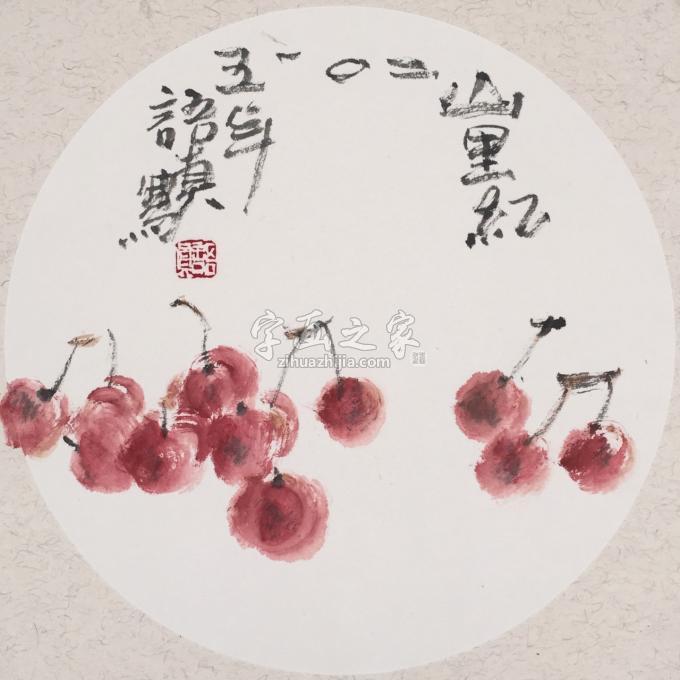 山里红
二〇一
五年
語真寫
字画之家
zihuazhijia.com